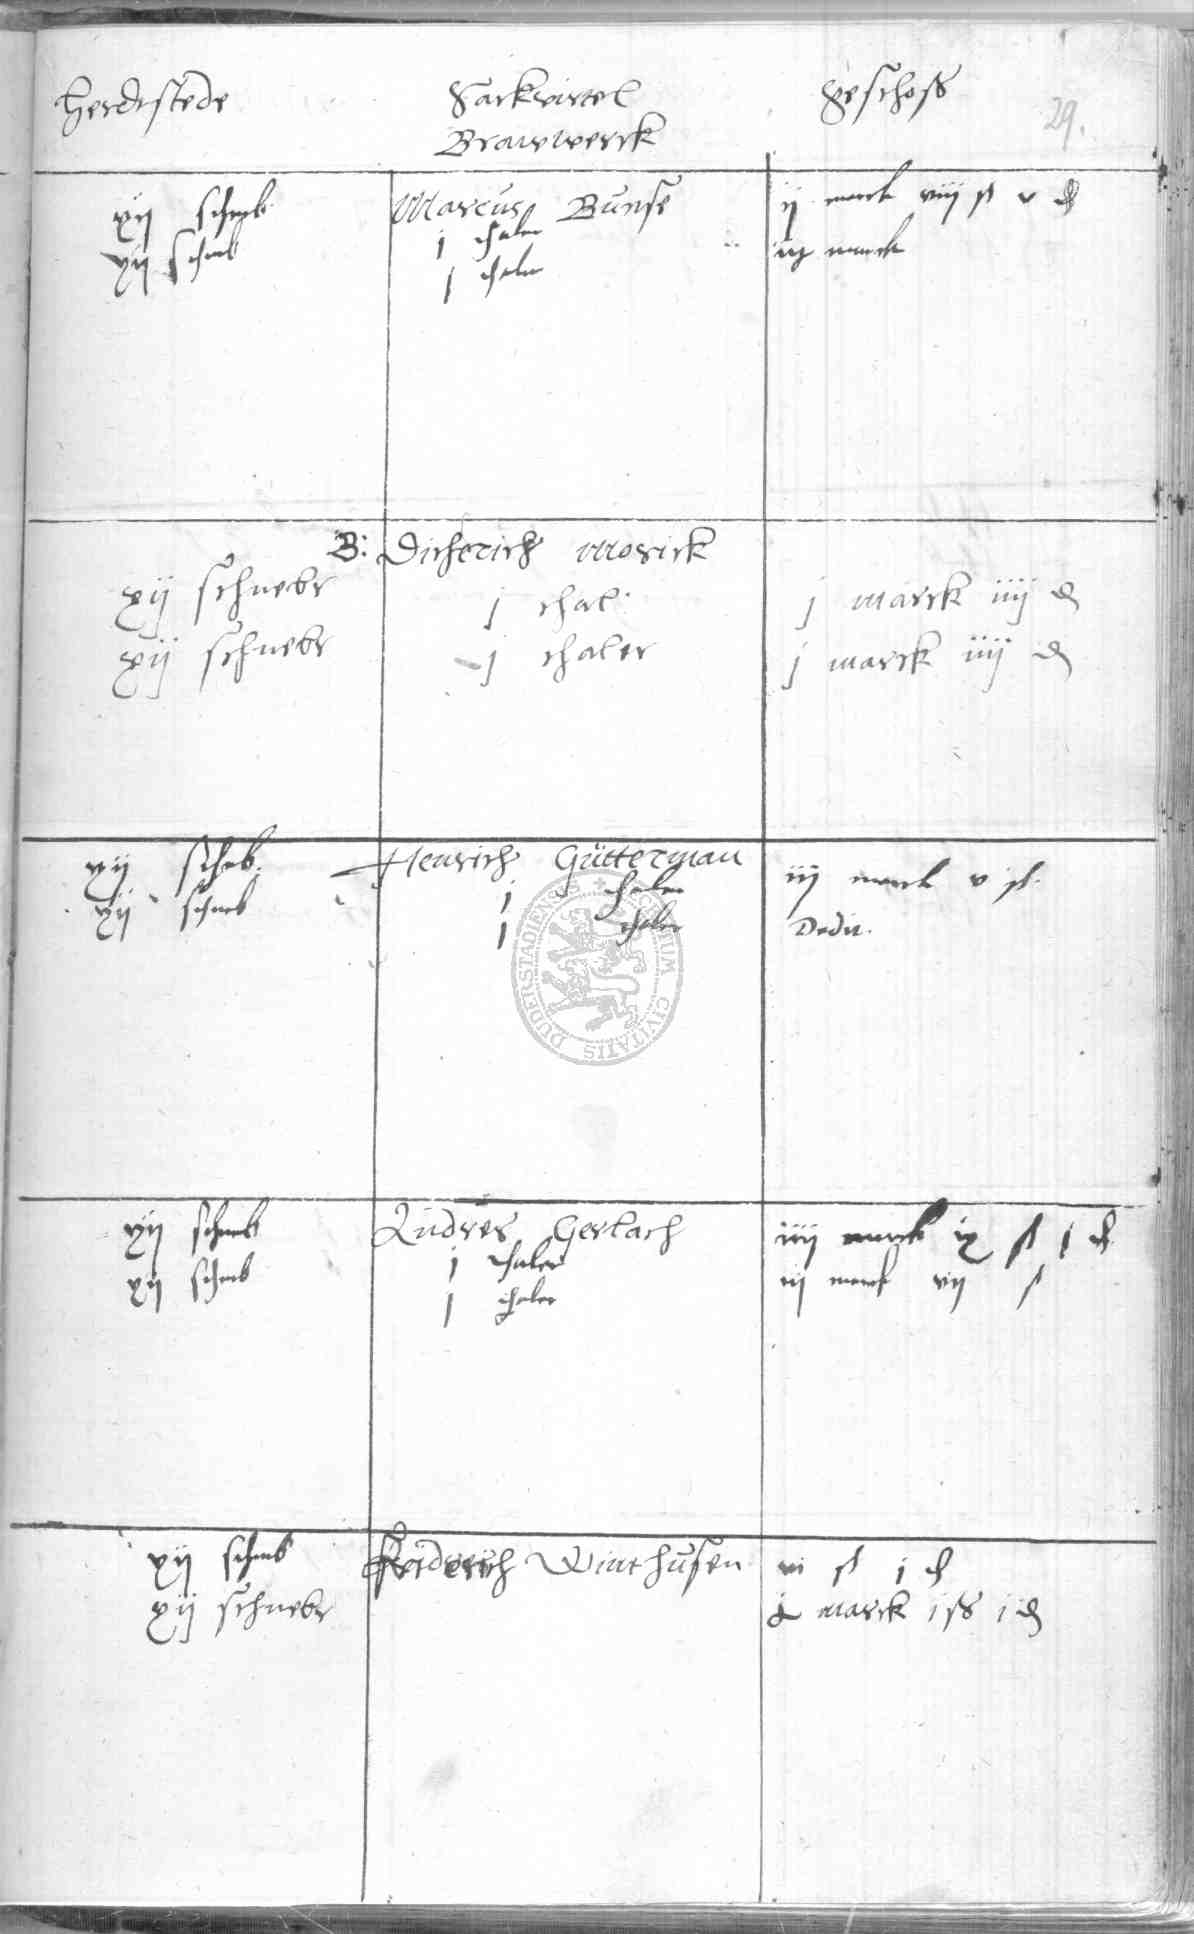 Herdtstede
Sackvirtel
Brauwerck
Geschoß
29.
xij schneb.
xij schneb
Marcus Bunse
j thaler
j thaler
ij marck viij ß v ₰
iij marck
B: Ditherich Morick
xij schnebr
xij schnebr
j thal.
j thaler
j marck iiij ₰
j marck iiij ₰
xij schneb.
xij schneb
Henrich Gütterman
j thaler
j thaler
iij marck v ß.
Dedit.
xij schneb
xij schneb
Ludres Gerlach
j thaler
j thaler
iiij marck ix ß j ₰
iij marck vij ß
xij schneb
xij schnebr
Friderich Winthusen
vi ß j ₰
marck i ß i ₰
DUDERSTADIENSIS CIVITATIS